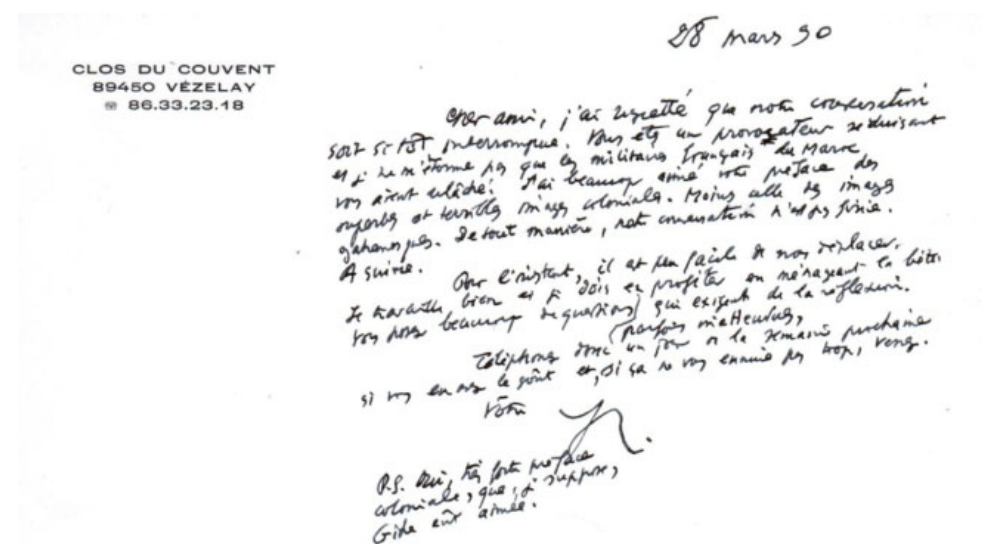 28 mars 90
CLOS DU COUVENT
89450 VÉZELAY
☎ 86.33.23.18
Cher ami, j'ai regretté que notre conversation
soit si tôt interrompue. Vous êtes un provocateur séduisant
et je ne m'étonne pas que les militaires français du Maroc
vous aient relâché! J'ai beaucoup aimé votre préface des
superbes et terribles images coloniales. Moins celle des images
De toute manière, notre conversation n'est pas finie.
A suivre.
Pour l'instant, il est peu facile de nous déplacer.
Je travaille bien et je dois en profiter en ménageant la bête.
Vos posez beaucoup de questions qui exigent de la réflexion.
(parfois inattendues,
Téléphonez donc un jour de la semaine prochaine
si vous en avez le goût et, si ça ne vous ennuie pas trop, venez.
Votre
P.S. Oui, très forte préface
coloniale, que, je suppose,
Gide eût aimée.